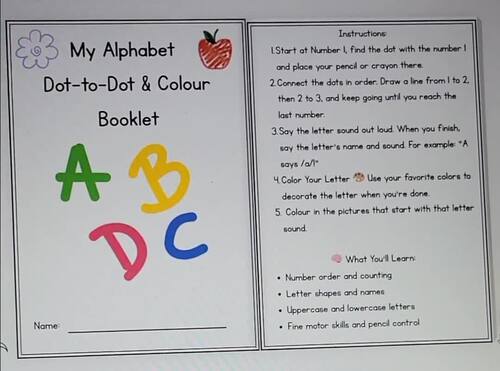 My Alphabet
Dot-to-Dot & Colour
Booklet
A B
D C
Name:
Instructions:
1.Start at Number 1, find the dot with the number 1
and place your pencil or crayon there.
2.Connect the dots in order. Draw a line from 1 to 2,
then 2 to 3, and keep going until you reach the
last number.
3.Say the letter sound out loud. When you finish,
say the letter's name and sound. For example: "A
says /a/!"
4.Color Your Letter Use your favorite colors to
decorate the letter when you're done.
5. Colour in the pictures that start with that letter
sound.
What You'll Learn:
• Number order and counting
• Letter shapes and names
• Uppercase and lowercase letters
• Fine motor skills and pencil control